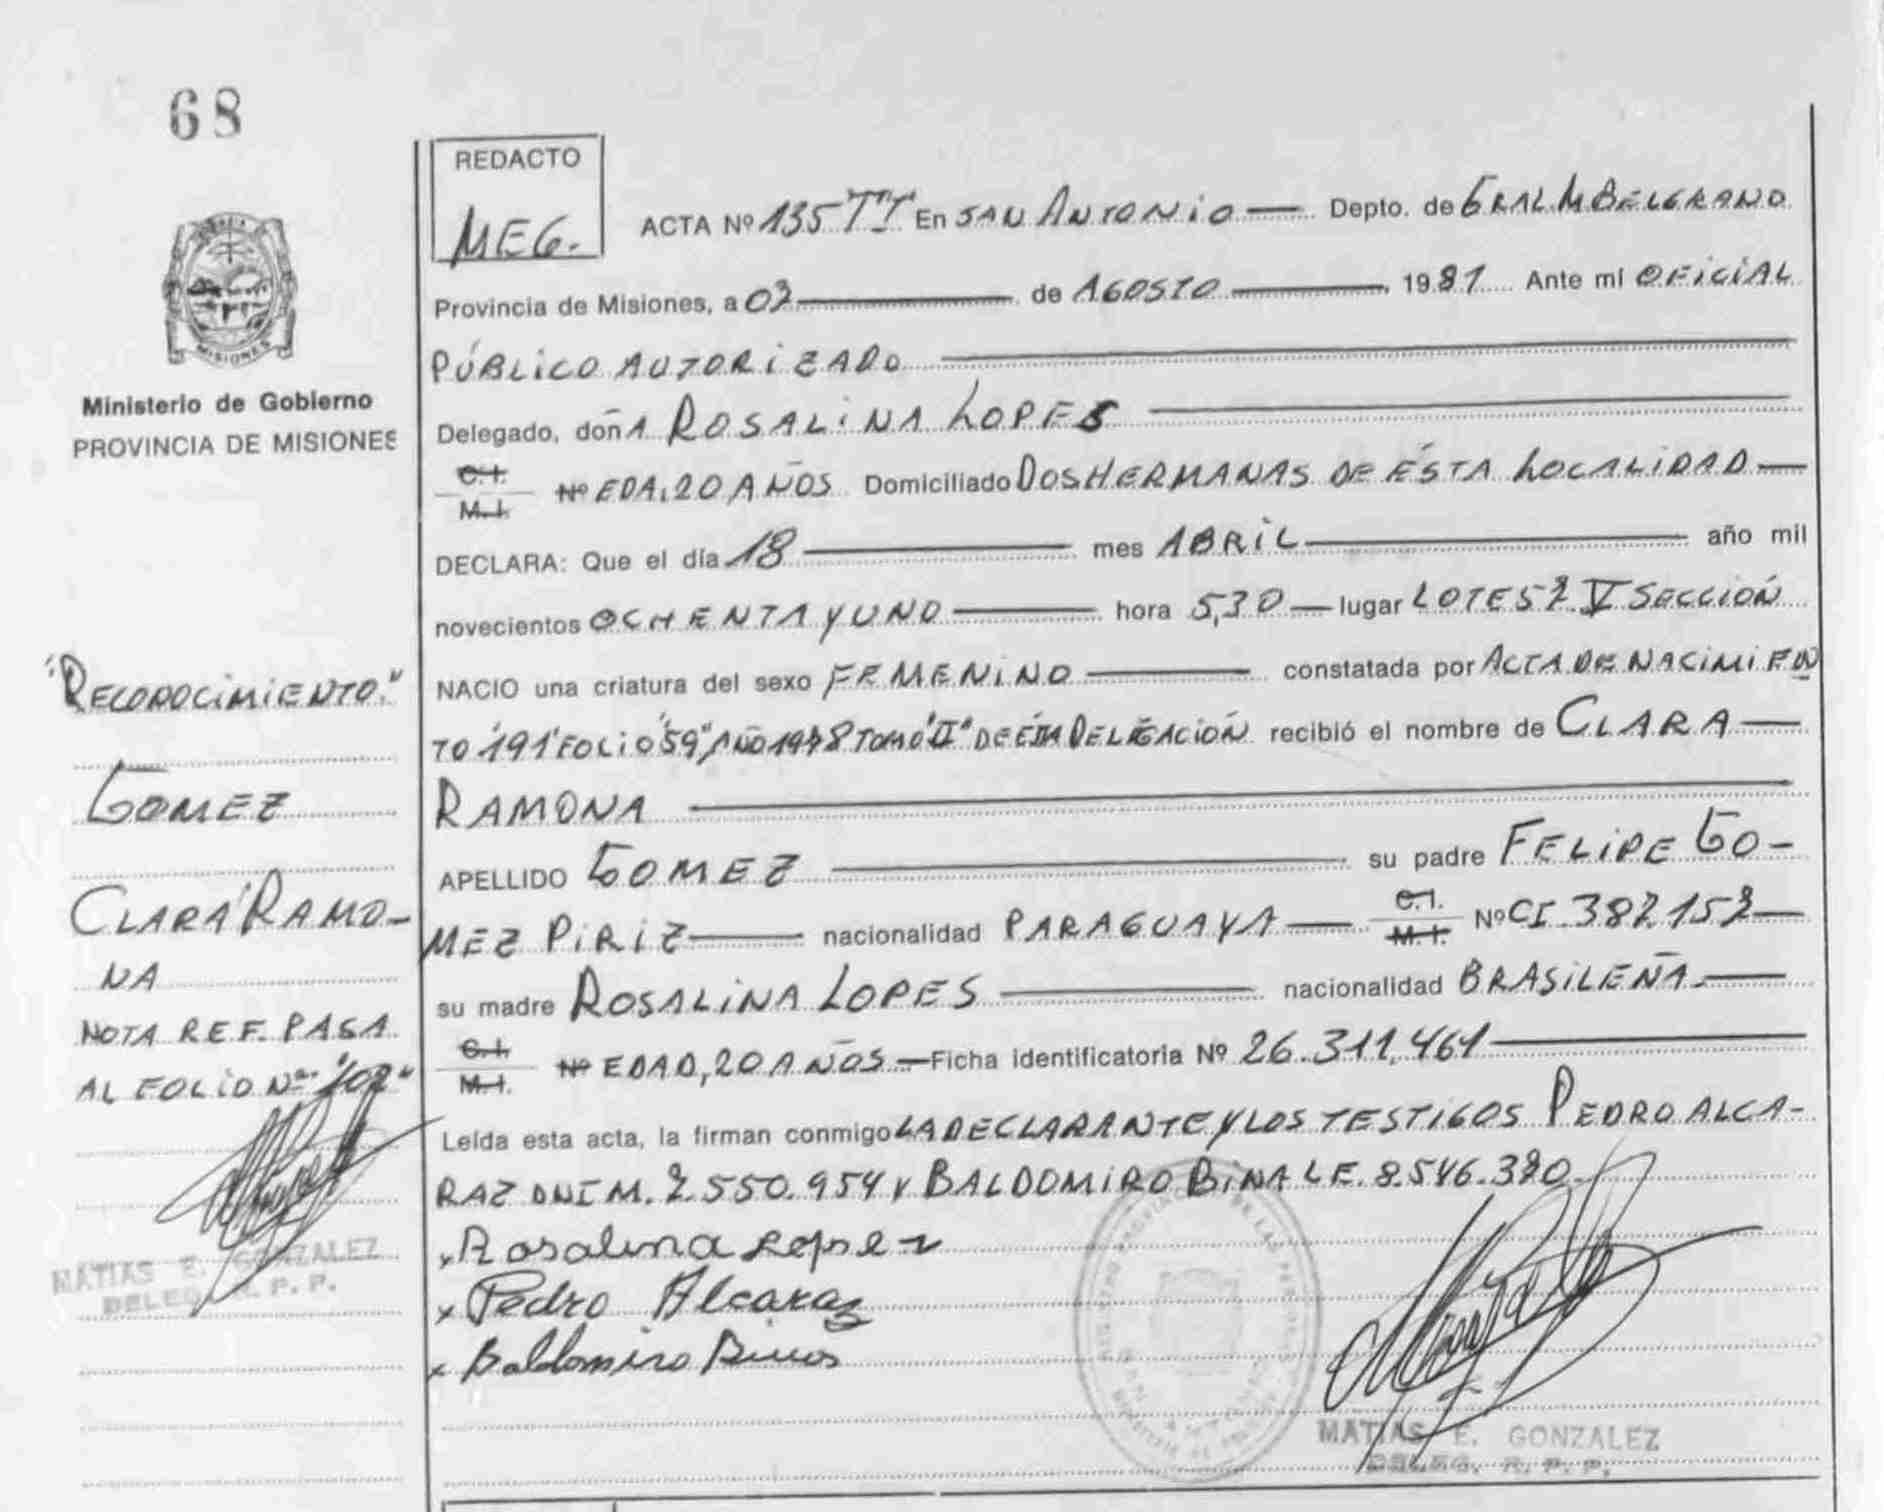 68
REDACTO
MEG.
ACTA Nº 135 TºIº En SAN ANTONIO Depto. de GRAL M BELGRANO
Provincia de Misiones, a 03 de AGOSTO 1981 Ante mi OFICIAL
PÚBLICO AUTORIZADO
Delegado, doñA ROSALINA LOPES
C.I. M.I. Nº EDA. 20 AÑOS Domiciliado DOS HERMANAS DE ÉSTA LOCALIDAD
DECLARA: Que el día 18 mes ABRIL año mil
novecientos OCHENTA Y UNO hora 5,30 lugar LOTE 52 V SECCIÓN
NACIO una criatura del sexo FEMENINO constatada por ACTA DE NACIMIEN
TO "191" FOLIO "59" AÑO TOMO "II" DE ÉSTA DELEGACIÓN recibió el nombre de CLARA
RAMONA
APELLIDO GOMEZ su padre FELIPE GO-
MEZ PIRIZ nacionalidad PARAGUAYA C.I. M.I. Nº CI. 382.152
su madre ROSALINA LOPES nacionalidad BRASILEÑA
C.I. M.I. Nº EDAD, 20 AÑOS Ficha identificatoria Nº 26.311.461
Leída esta acta, la firman conmigo LA DECLARANTE Y LOS TESTIGOS PEDRO ALCA-
RAZ DNI M. 2.550.954 Y BALDOMIRO BINA LE. 8.546.320
x Rosalina Lopez
x Pedro Alcaraz
x Baldomiro
MATIAS E. GONZALEZ
DELEG. R. P. P.
MISIONES
Ministerio de Gobierno
PROVINCIA DE MISIONES
"RECONOCIMIENTO."
GOMEZ
CLARA RAMO-
NA
NOTA REF. PASA
AL FOLIO Nº "102"
MATIAS E. GONZALEZ
DELEG. R. P. P.